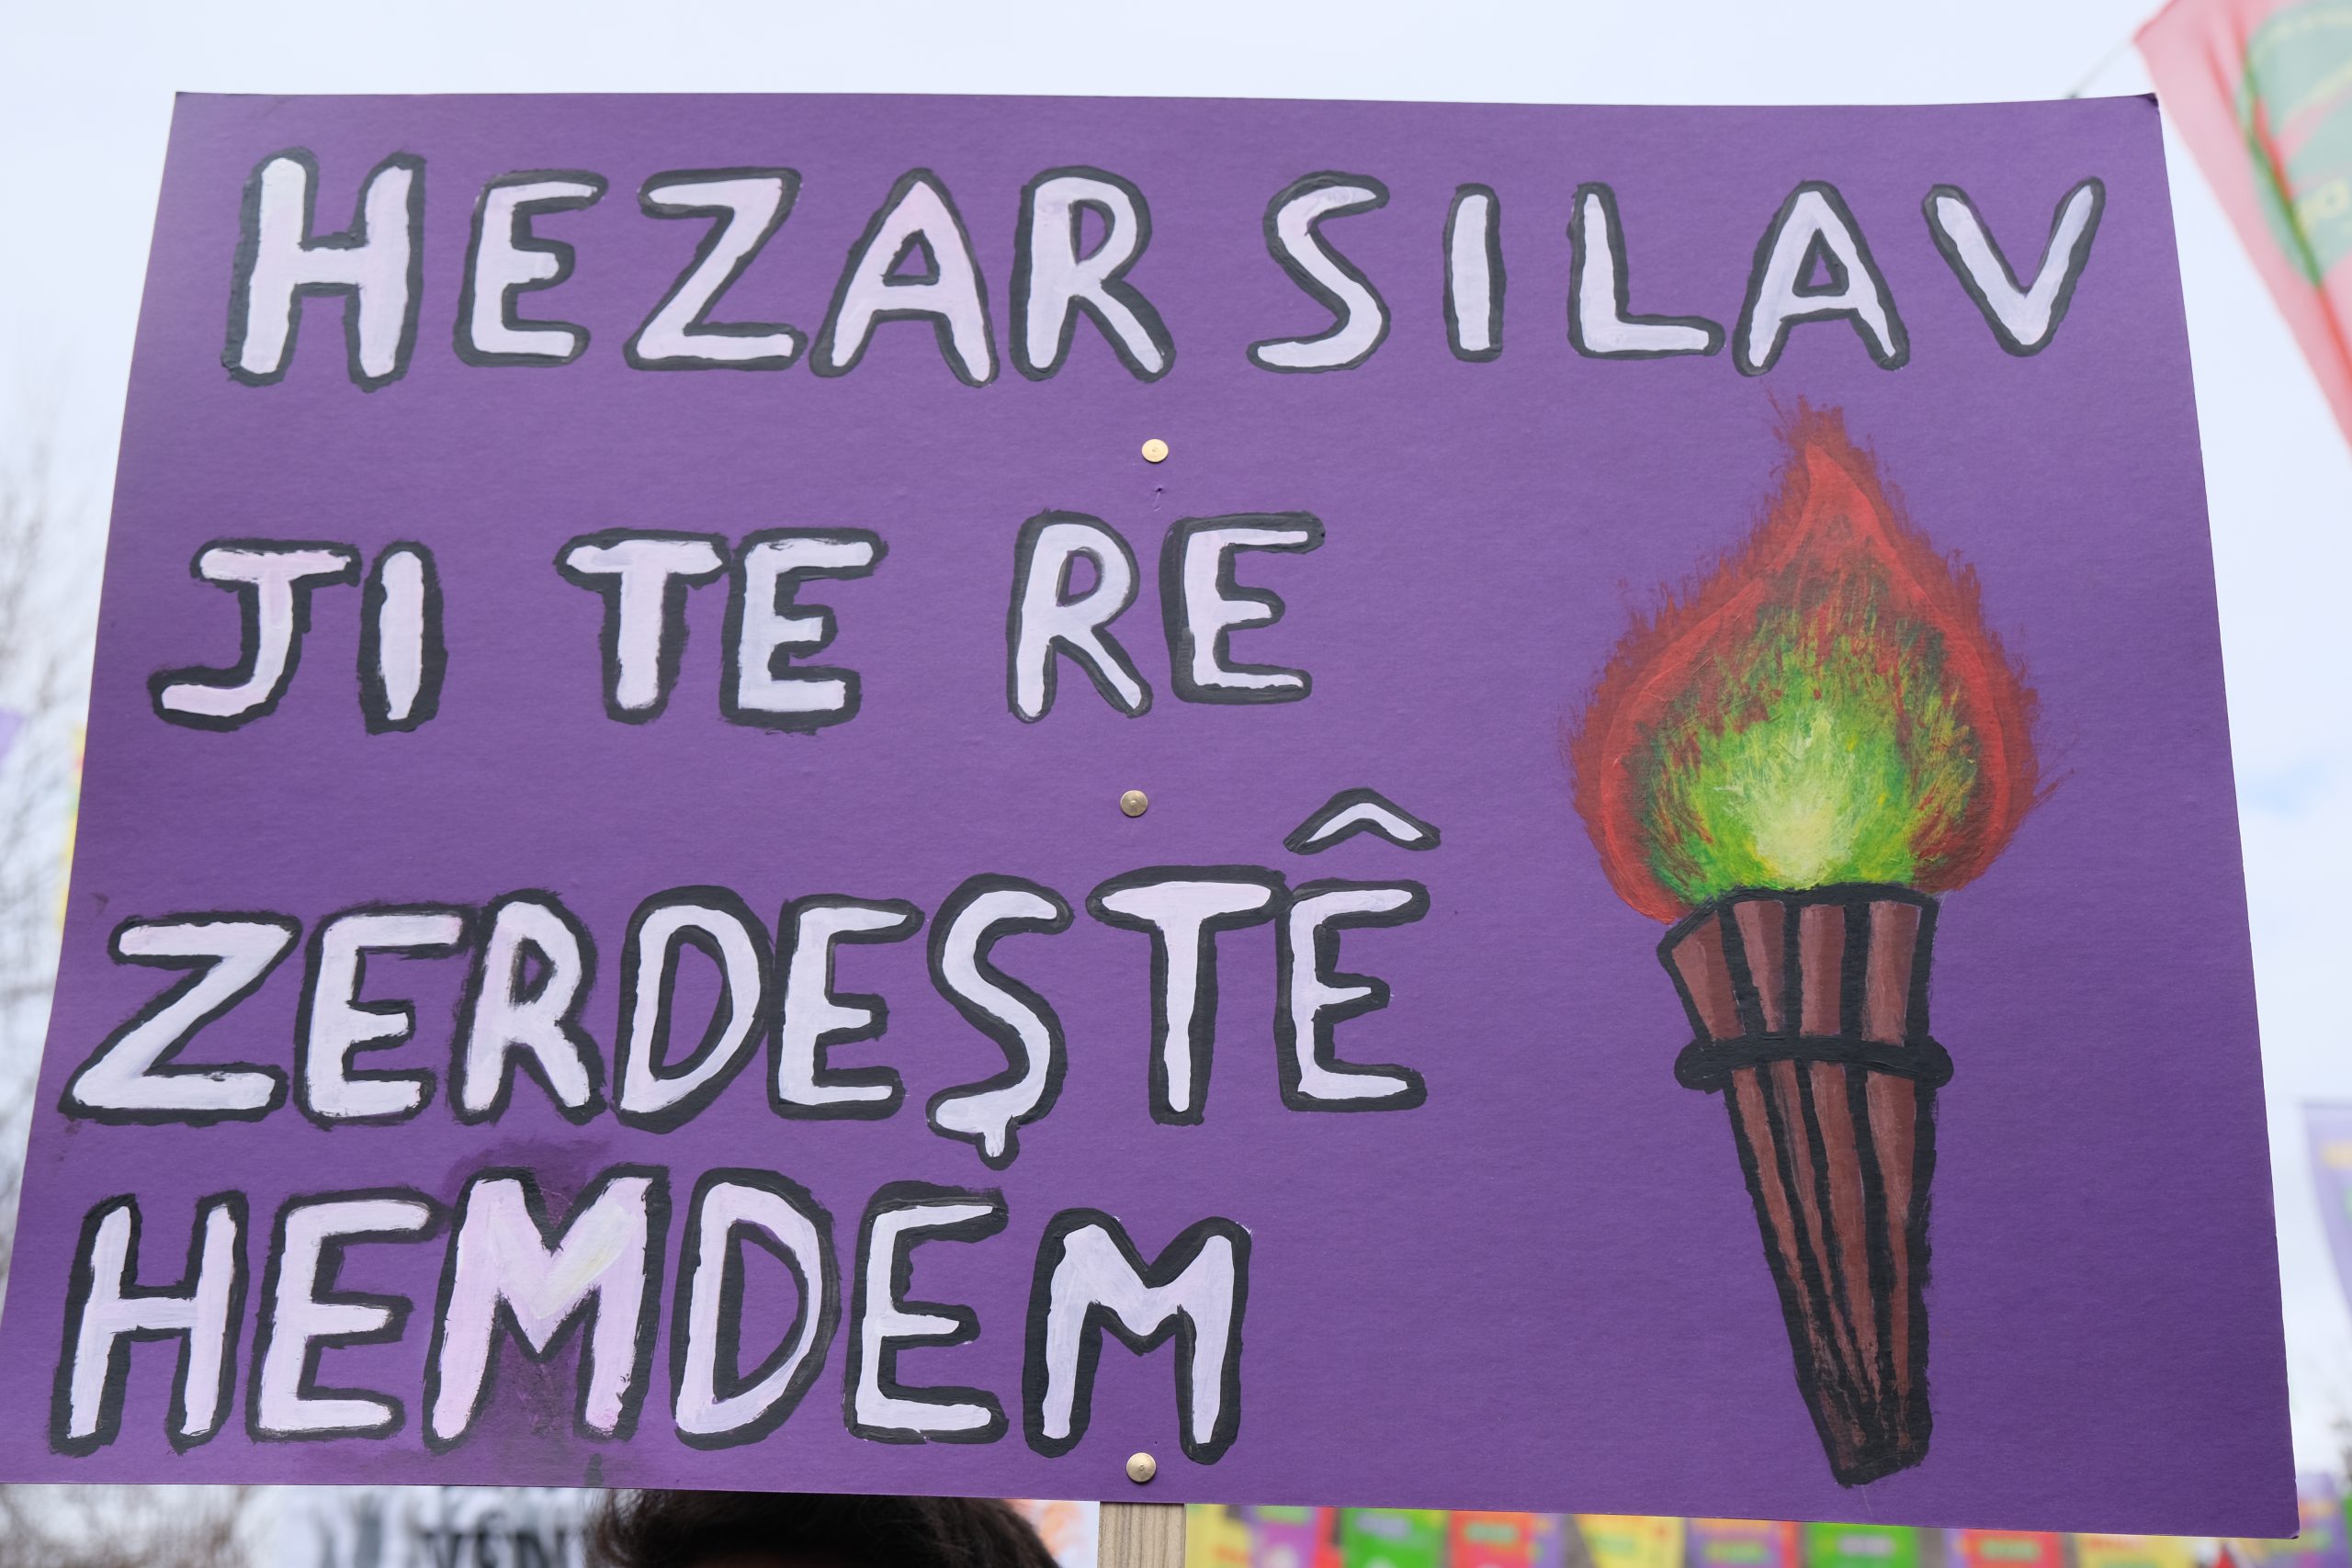 HEZAR SILAV
JI TE RE
ZERDEŞTÊ
HEMDEM